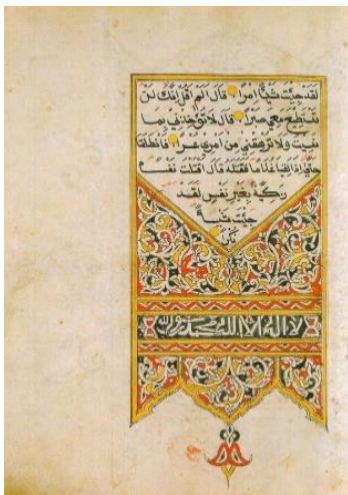 لَقَدْ جِئْتَ شَيْئًا اِمْرًا قَالَ اَلَمْ اَقُلْ اِنَّكَ لَنْ
تَسْتَطِيعَ مَعِيَ صَبْرًا قَالَ لَا تُؤَاخِذْنِي بِمَا
نَسِيتُ وَلَا تُرْهِقْنِي مِنْ اَمْرِي عُسْرًا فَانْطَلَقَا
حَتَّى اِذَا لَقِيَا غُلَامًا فَقَتَلَهُ قَالَ اَقَتَلْتَ نَفْسًا
زَكِيَّةً بِغَيْرِ نَفْسٍ لَقَدْ
جِئْتَ شَيْئًا
نُكْرًا
لا اله الا الله محمد رسول الله